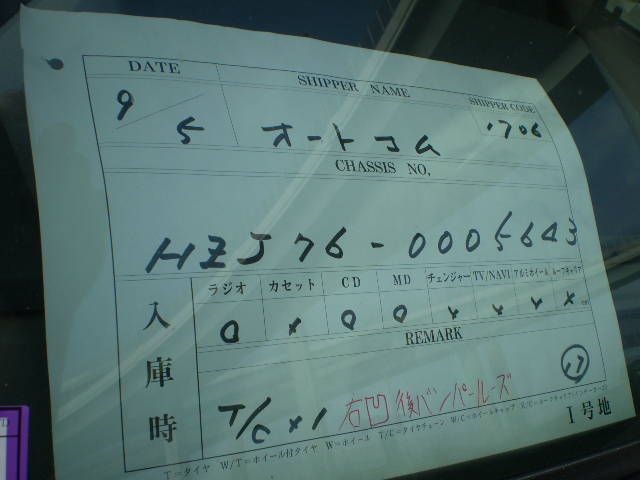 DATE SHIPPER NAME SHIPPER CODE
9/5 オートコム 1706
CHASSIS NO.
HZJ76-0005643
ラジオ カセット CD MD チェンジャー TV/NAVI アルミホイール ルーフキャリア
入庫時 O × O O × × × ×
REMARK
T/C×1 右凹 後バンパールーズ 17
T=タイヤ W/T=ホイール付タイヤ W=ホイール T/C=タイヤチェーン W/C=ホイールキャップ
I号地